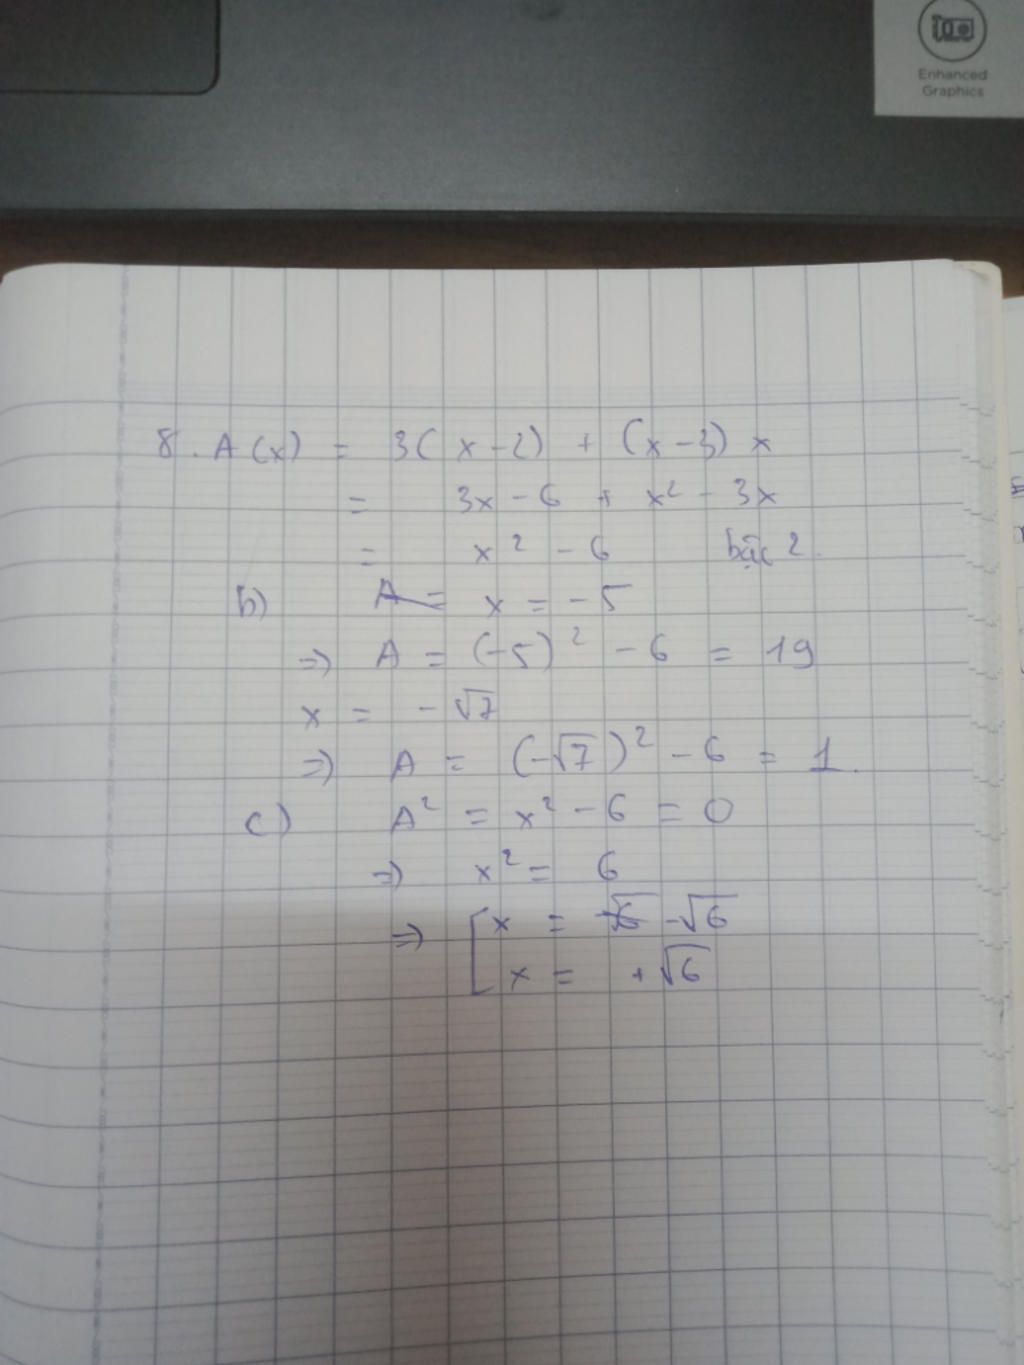 Enhanced
Graphics
8. A(x) = 3(x-2) + (x-3)x
= 3x - 6 + x² - 3x
= x² - 6 bậc 2.
b) A = x = -5
=> A = (-5)² - 6 = 19
x = -√7
=> A = (-√7)² - 6 = 1.
c) A² = x² - 6 = 0
=> x² = 6
=> [x = √6 -√6
x = +√6